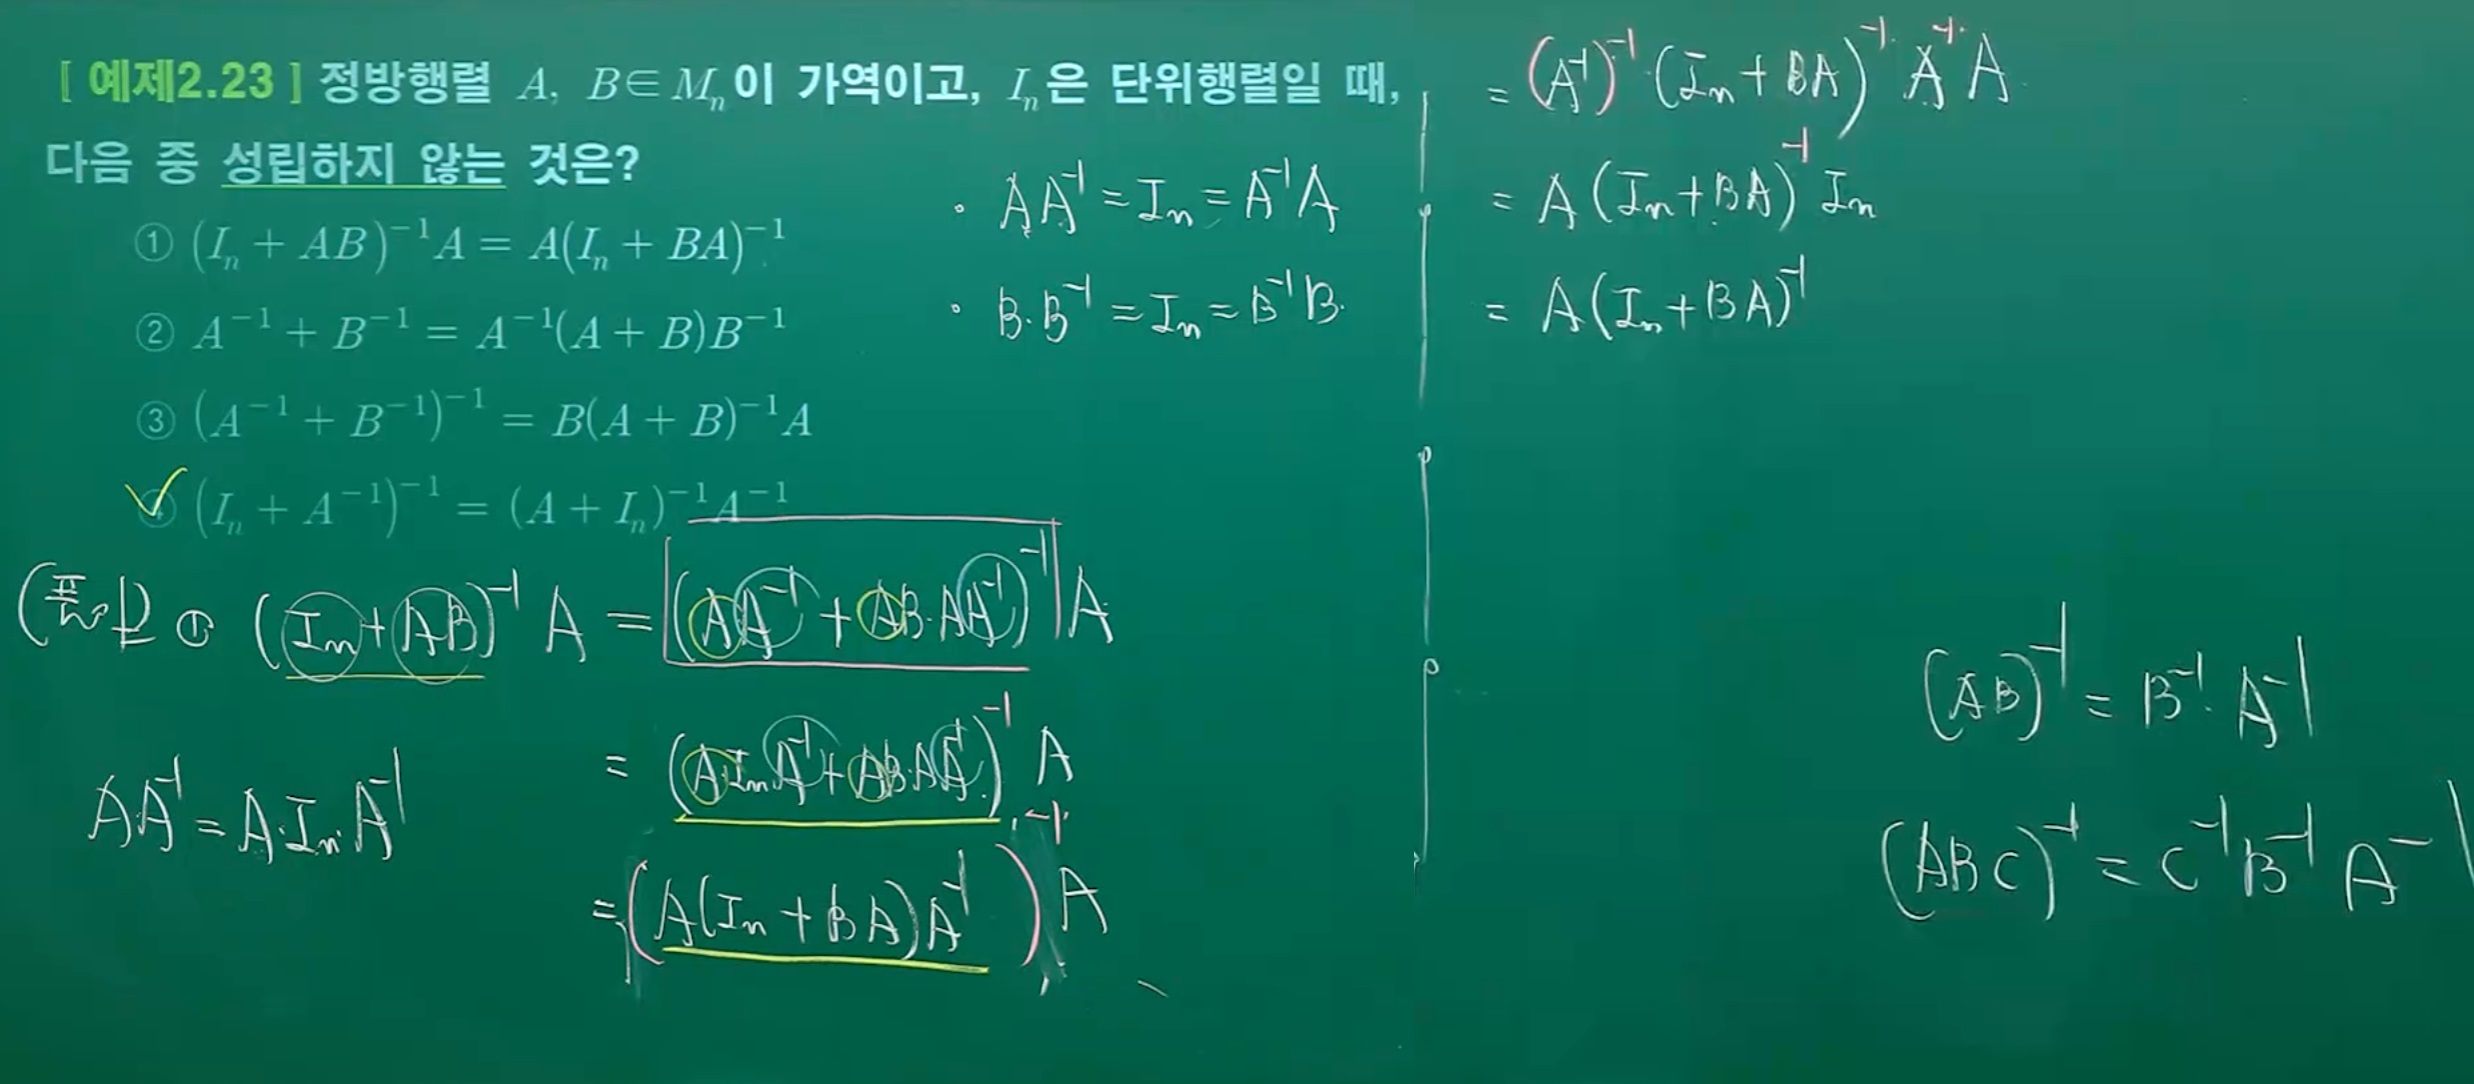 [ 예제2.23 ] 정방행렬 A, B∈Mₙ이 가역이고, Iₙ은 단위행렬일 때,
다음 중 성립하지 않는 것은?
① (Iₙ + AB)⁻¹A = A(Iₙ + BA)⁻¹
② A⁻¹ + B⁻¹ = A⁻¹(A + B)B⁻¹
③ (A⁻¹ + B⁻¹)⁻¹ = B(A + B)⁻¹A
④ (Iₙ + A⁻¹)⁻¹ = (A + Iₙ)⁻¹A⁻¹
· AA⁻¹ = Iₙ = A⁻¹A
· B·B⁻¹ = Iₙ = B⁻¹B.
(풀이) ① (Iₙ + AB)⁻¹ A = (AA⁻¹ + AB·AA⁻¹)⁻¹ A
= (A·IₙA⁻¹ + AB·AA⁻¹)⁻¹ A
AA⁻¹ = A·Iₙ·A⁻¹
= (A(Iₙ + BA)A⁻¹)⁻¹ A
= (A⁻¹)⁻¹·(Iₙ + BA)⁻¹ A⁻¹ A
= A(Iₙ + BA)⁻¹ Iₙ
= A(Iₙ + BA)⁻¹
(AB)⁻¹ = B⁻¹·A⁻¹
(ABC)⁻¹ = C⁻¹B⁻¹A⁻¹